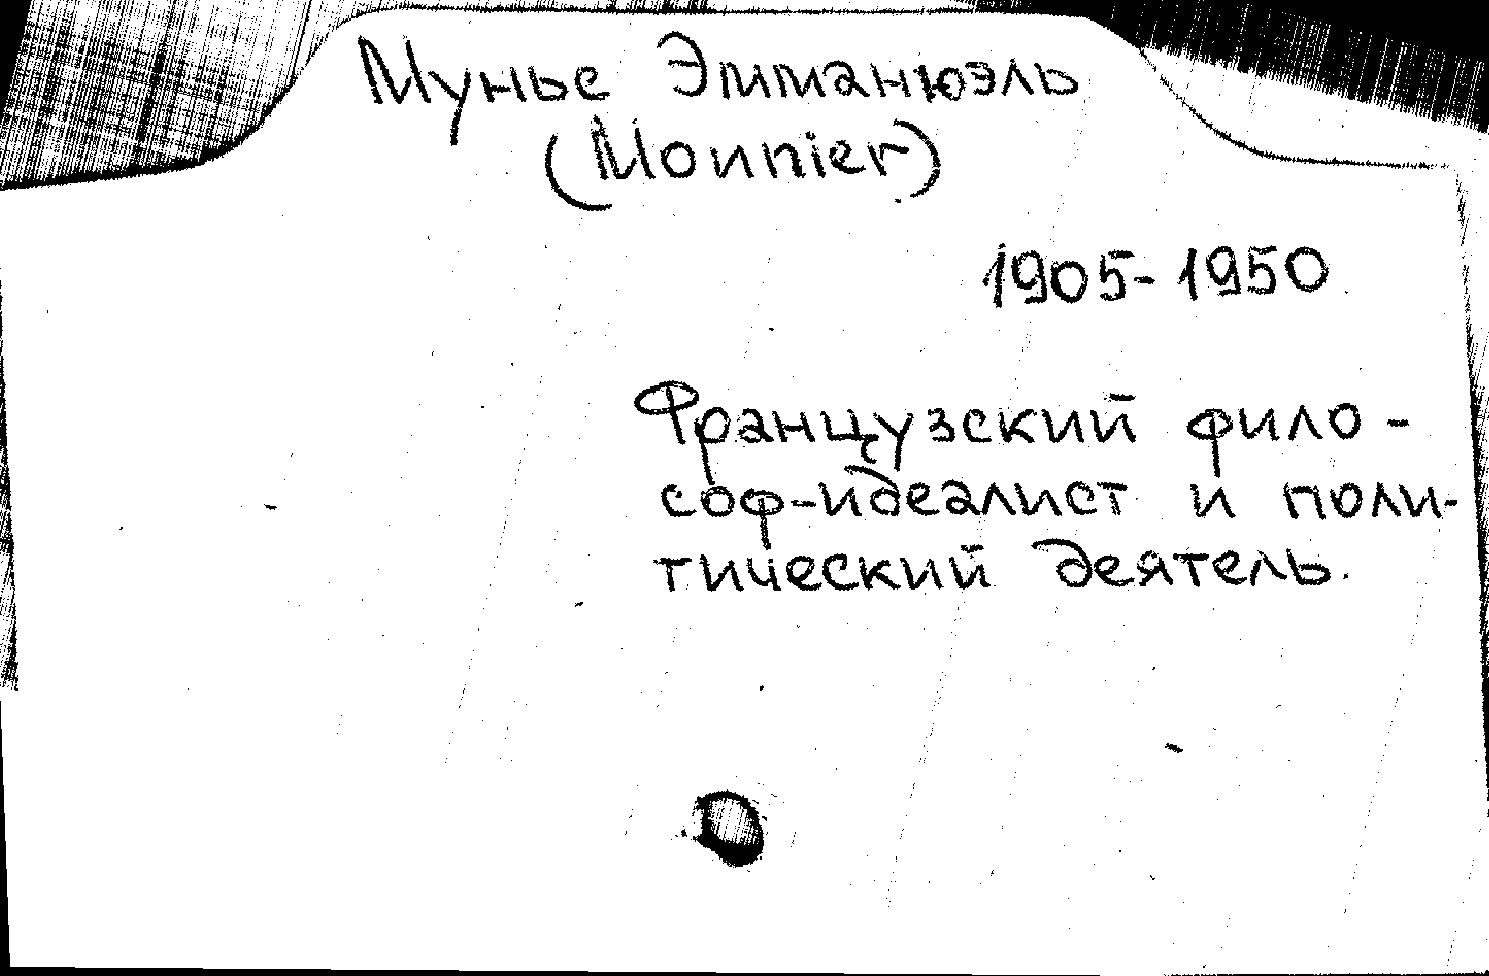 Мунье Эммануэль
(Monnier)
1905-1950
Французский фило-
соф-идеалист и поли-
тический деятель.